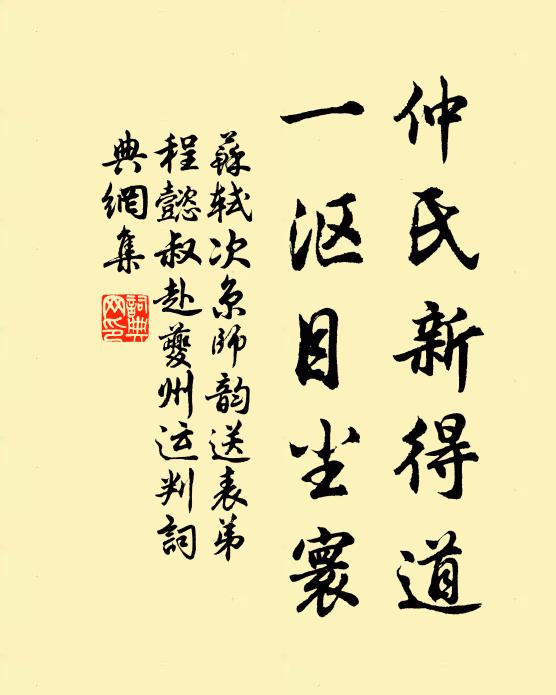 仲氏新得道
一沤目尘寰
蘇轼次京师韵送表弟
程懿叔赴夔州运判詞
典網集
詞典网印